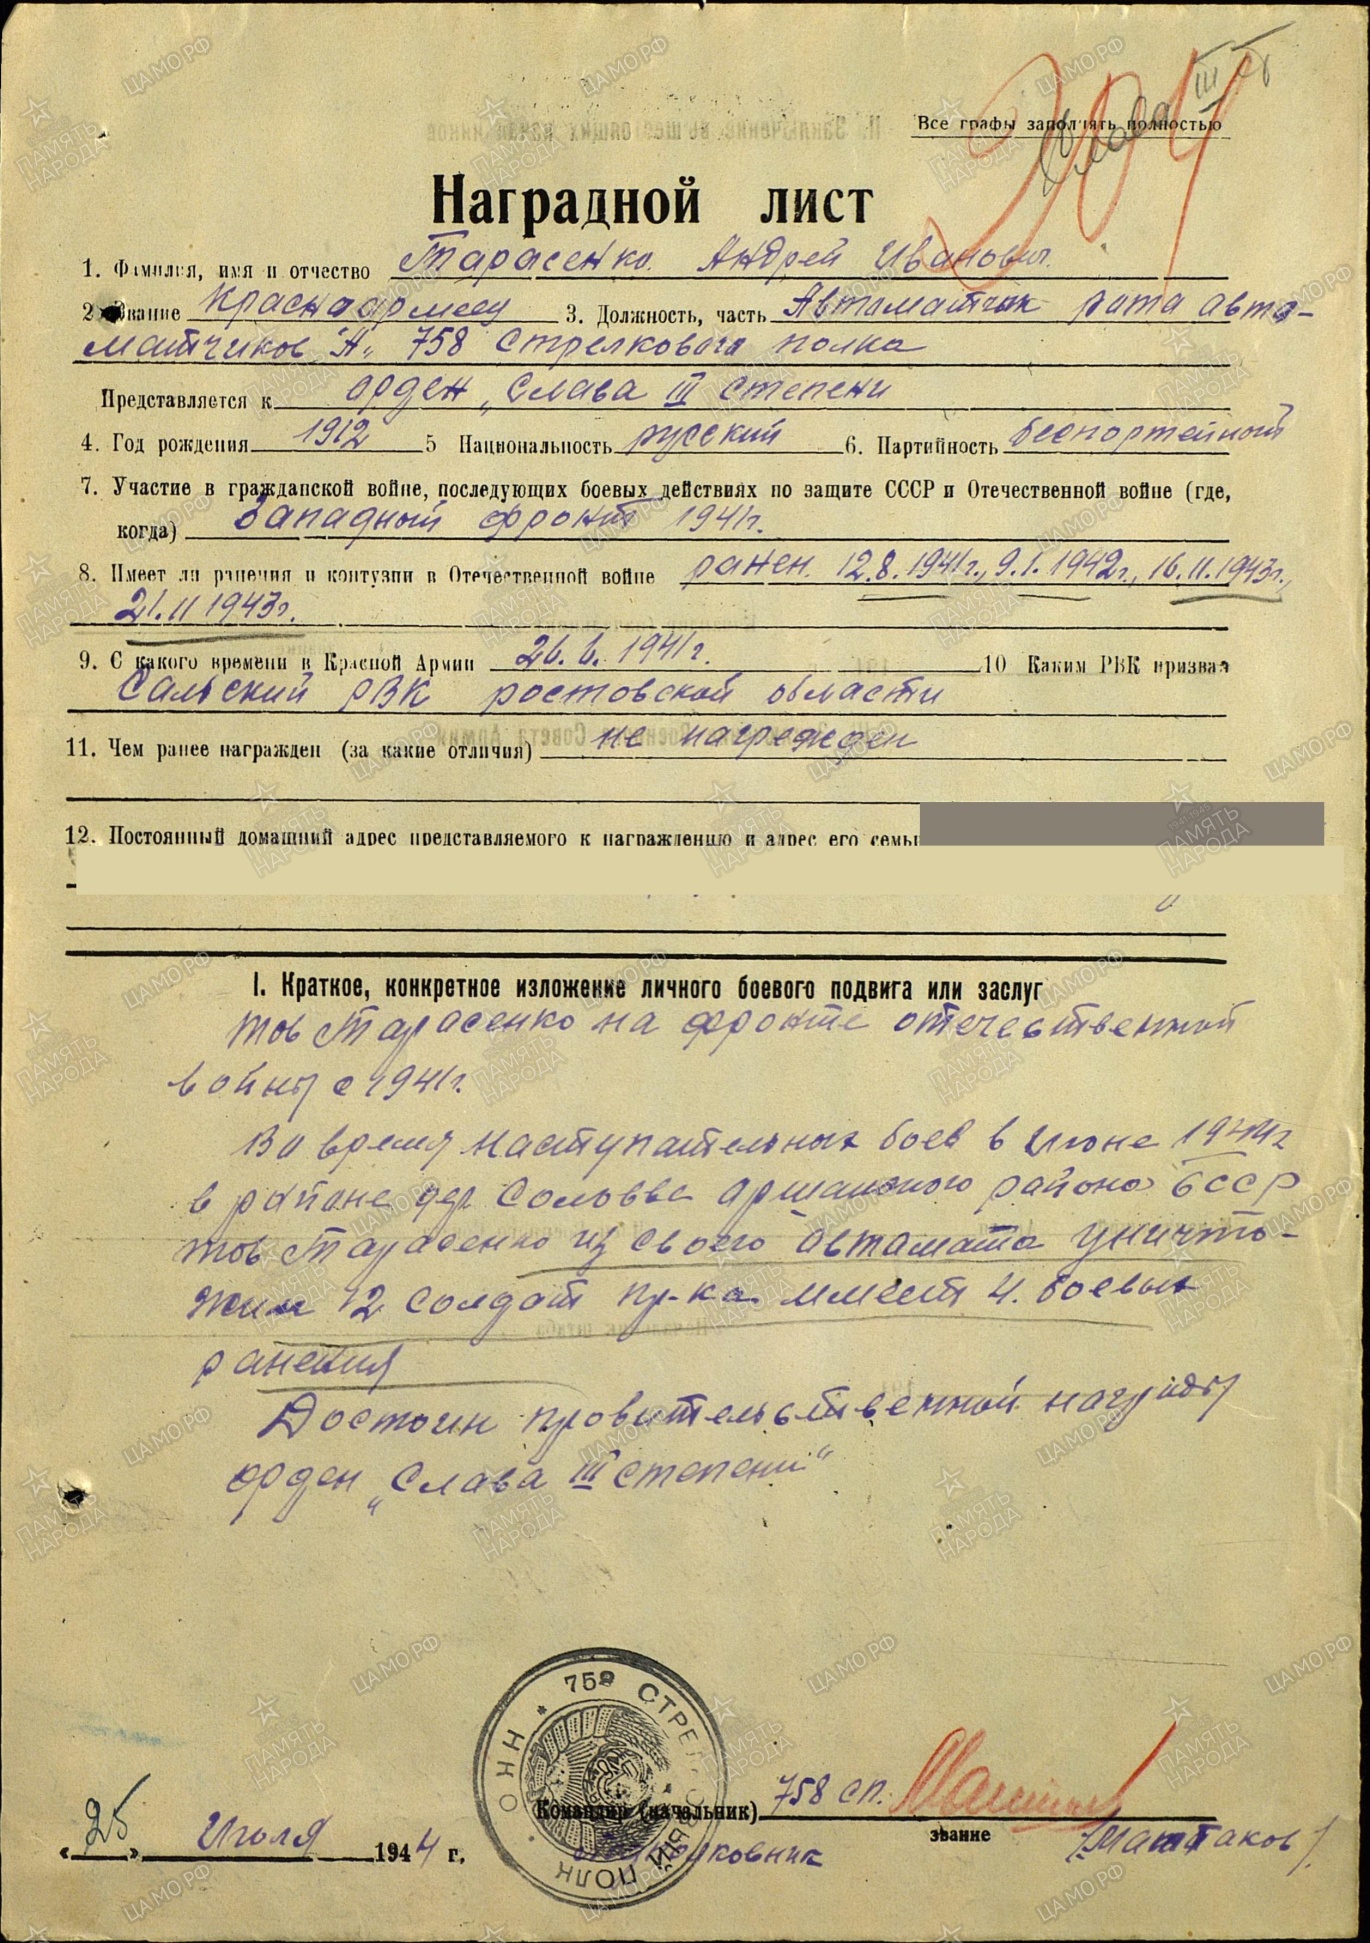 Слава III ст
204
Все графы заполнять полностью
Наградной лист
1. Фамилия, имя и отчество Тарасенко Андрей Иванович
2. Звание Красноармеец 3. Должность, часть Автоматчик рота авто-
матчиков "А" 758 стрелкового полка
Представляется к орден „Слава III степени
4. Год рождения 1912 5 Национальность русский 6. Партийность беспортейный
7. Участие в гражданской войне, последующих боевых действиях по защите СССР и Отечественной войне (где,
когда) Западный фронт 1941г.
8. Имеет ли ранения и контузии в Отечественной войне ранен 12.8.1941г., 9.1.1942г., 16.11.1943г.,
21.11 1943г.
9. С какого времени в Красной Армии 26.6.1941г. 10 Каким РВК призван
Сальский РВК ростовской области
11. Чем ранее награжден (за какие отличия) не награжден
12. Постоянный домашний адрес представляемого к награждению и адрес его семьи
I. Краткое, конкретное изложение личного боевого подвига или заслуг
тов Тарасенко на фронте отечественной
войны с 1941г.
Во время наступательных боев в Июне 1944г
в районе дер. Соловье аршанского района БССР
тов Тарасенко из своего автамата уничто-
жил 12 солдат пр-ка имеет 4. боевых
ранения
Достоин провительственной награды
орден „Слава III степени"
* 758 СТРЕЛКОВЫЙ ПОЛК * ОНН
Командир (начальник) 758 СП.
звание
"25" Июля 1944 г. Подполковник /Маштаков/
ЦАМО РФ
ПАМЯТЬ НАРОДА